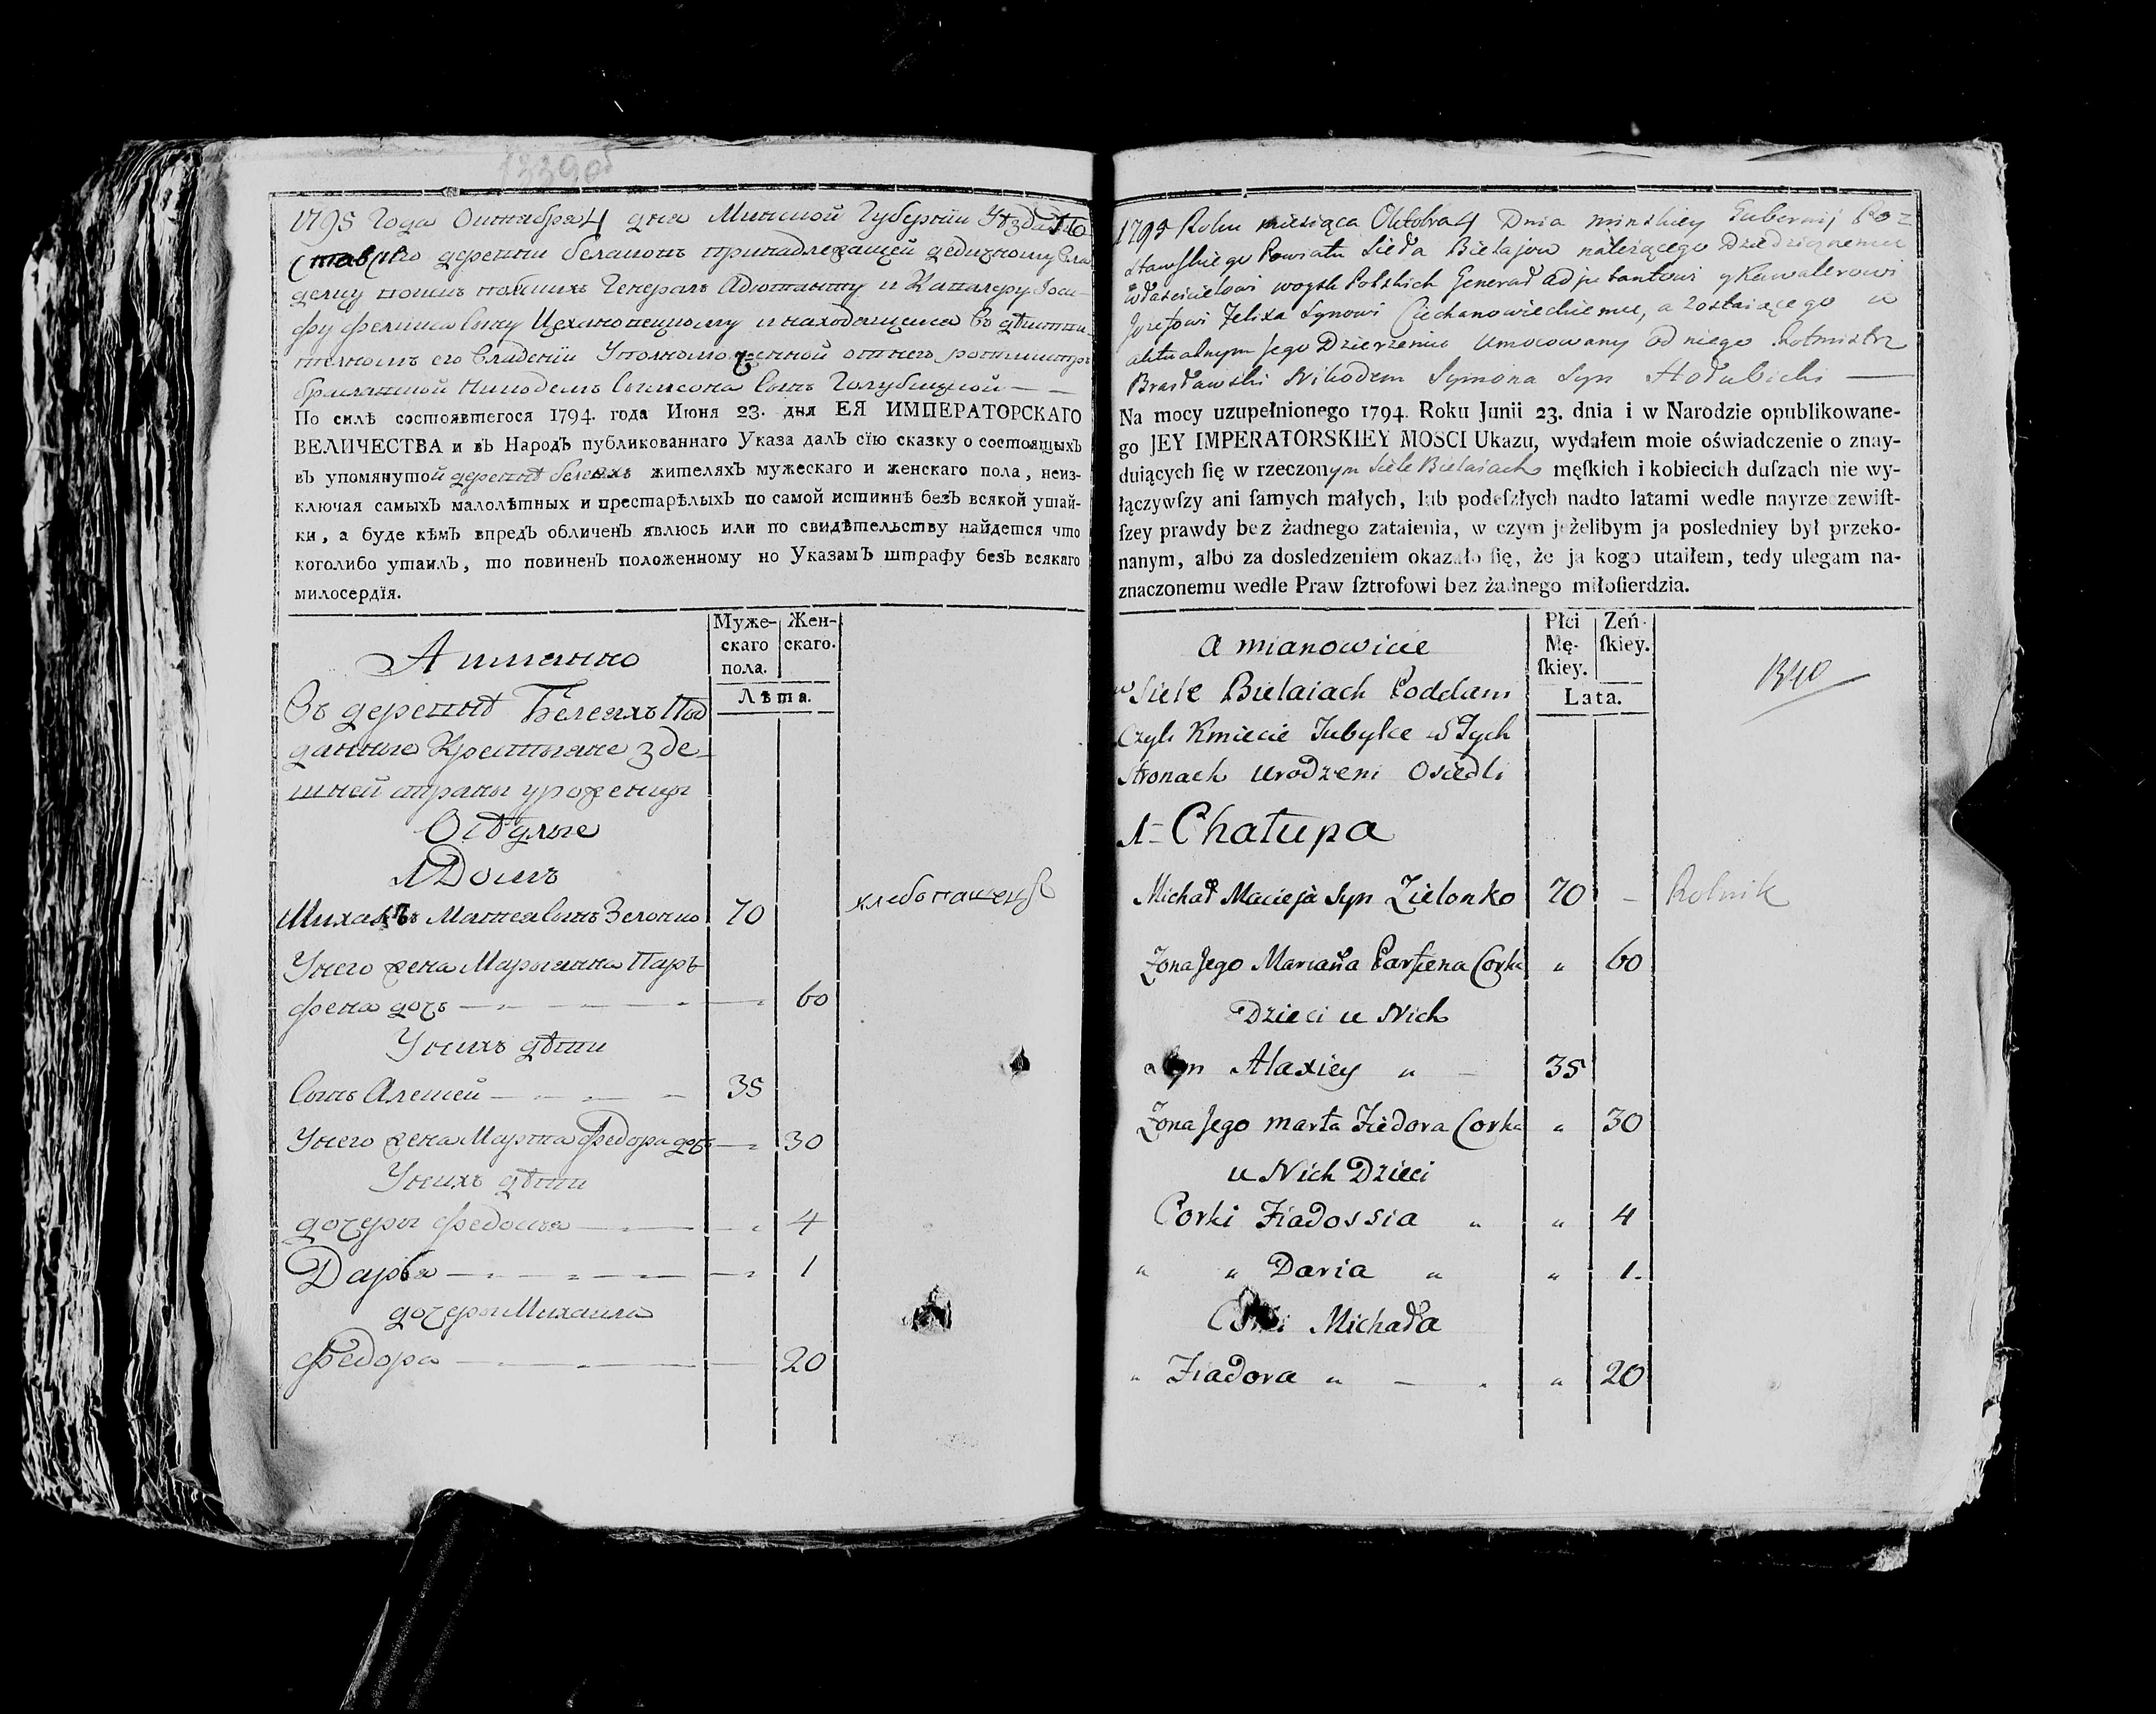 1339об
1795 Года Октября 4 дня Минской Губернїи Уѣзда По
ставскаго деревни белаковъ принадлежащей дедичному Вла
делцу войскъ польскихъ Генералъ Адютанту и Кавалеру Иоси-
фу феликса сыну Цехановецкому и находящемся въ
его Владенїи Уполномоченной отнего ротмистръ
браславской Никодемъ Сымона Сынъ Голубицкой — —
По силѣ состоявшегося 1794. года Июня 23. дня ЕЯ ИМПЕРАТОРСКАГО
ВЕЛИЧЕСТВА и вЪ НародЪ публикованнаго Указа далЪ сїю сказку о состоящыхЪ
вЪ упомянутой деревнѣ белеяхъ жителяхЪ мужескаго и женскаго пола, неиз-
ключая самыхЪ малолѣтных и престарѣлыхЪ по самой истиннѣ безЪ всякой утай-
ки, а буде кѣмЪ впредЪ обличенЪ явлюсь или по свидѣтельству найдется что
коголибо утаилЪ, то повиненЪ положенному по УказамЪ штрафу безЪ всякаго
милосердїя.
Муже-
скаго
пола.
Жен-
скаго.
Лѣта.
А имянно
Въ деревнѣ Белеяхъ Под
данные Крестьяне зде-
шней страны уроженцы
Осѣдлые
1 Домъ
Михаилъ Матвея сынъ Зелонко 70 хлебопашецъ
Унего жена Марыанна Парѣ-
фена дочь — 60
Унихъ дѣти
Сынъ Алексей — 35
Унего жена Марта Федора дочь — 30
Унихъ дѣти
дочеры Федосья — 4
Дарья — 1
дочеры Михаила
Федора — 20
1795 Roku miesiąca Oktobra 4 Dnia minskiey Gubernij Po=
stawskiego Powiatu Sieła Bielajow należącego Dziedzicznemu
Właścicielowi woysk Polskich Generał adjutantowi y Kawalerowi
Jozefowi Felixa Synowi Ciechanowieckiemu, a zostaiącego w
aktualnym Jego Dzierżeniu Umocowany od niego Rotmistrz
Brasławski Nikodem Symona Syn Hołubicki —
Na mocy uzupełnionego 1794. Roku Junii 23. dnia i w Narodzie opublikowane-
go JEY IMPERATORSKIEY MOSCI Ukazu, wydałem moie oświadczenie o znay-
duiących ſię w rzeczonym Siele Bielaiach męſkich i kobiecich duſzach nie wy-
łączywſzy ani ſamych małych, lub podeſzłych nadto latami wedle nayrzeczewiſt-
ſzey prawdy bez żadnego zataienia, w czym jeżelibym ja posledniey był przeko-
nanym, albo za dosledzeniem okazało ſię, że ja kogo utaiłem, tedy ulegam na-
znaczonemu wedle Praw ſztrofowi bez żadnego miłoſierdzia.
Płci
Mę-
ſkiey.
Zeń-
ſkiey.
Lata.
1340
a mianowicie
w Siele Bielaiach Poddani
Czyli Kmiecie Tubylce w Tych
Stronach urodzeni Osiedli
1= Chałupa
Michał Macieja Syn Zielonko 70 – Rolnik
Żona Jego Mariana Parfiena Corka „ 60
Dzieci u Nich
Syn Alaxiey „ – 35
Żona Jego marta Fiedora Corka „ 30
u Nich Dzieci
Corki Fiadossia „ „ 4
„ „ Daria „ „ 1.
Corki Michała
„ Fiadora „ – „ 20